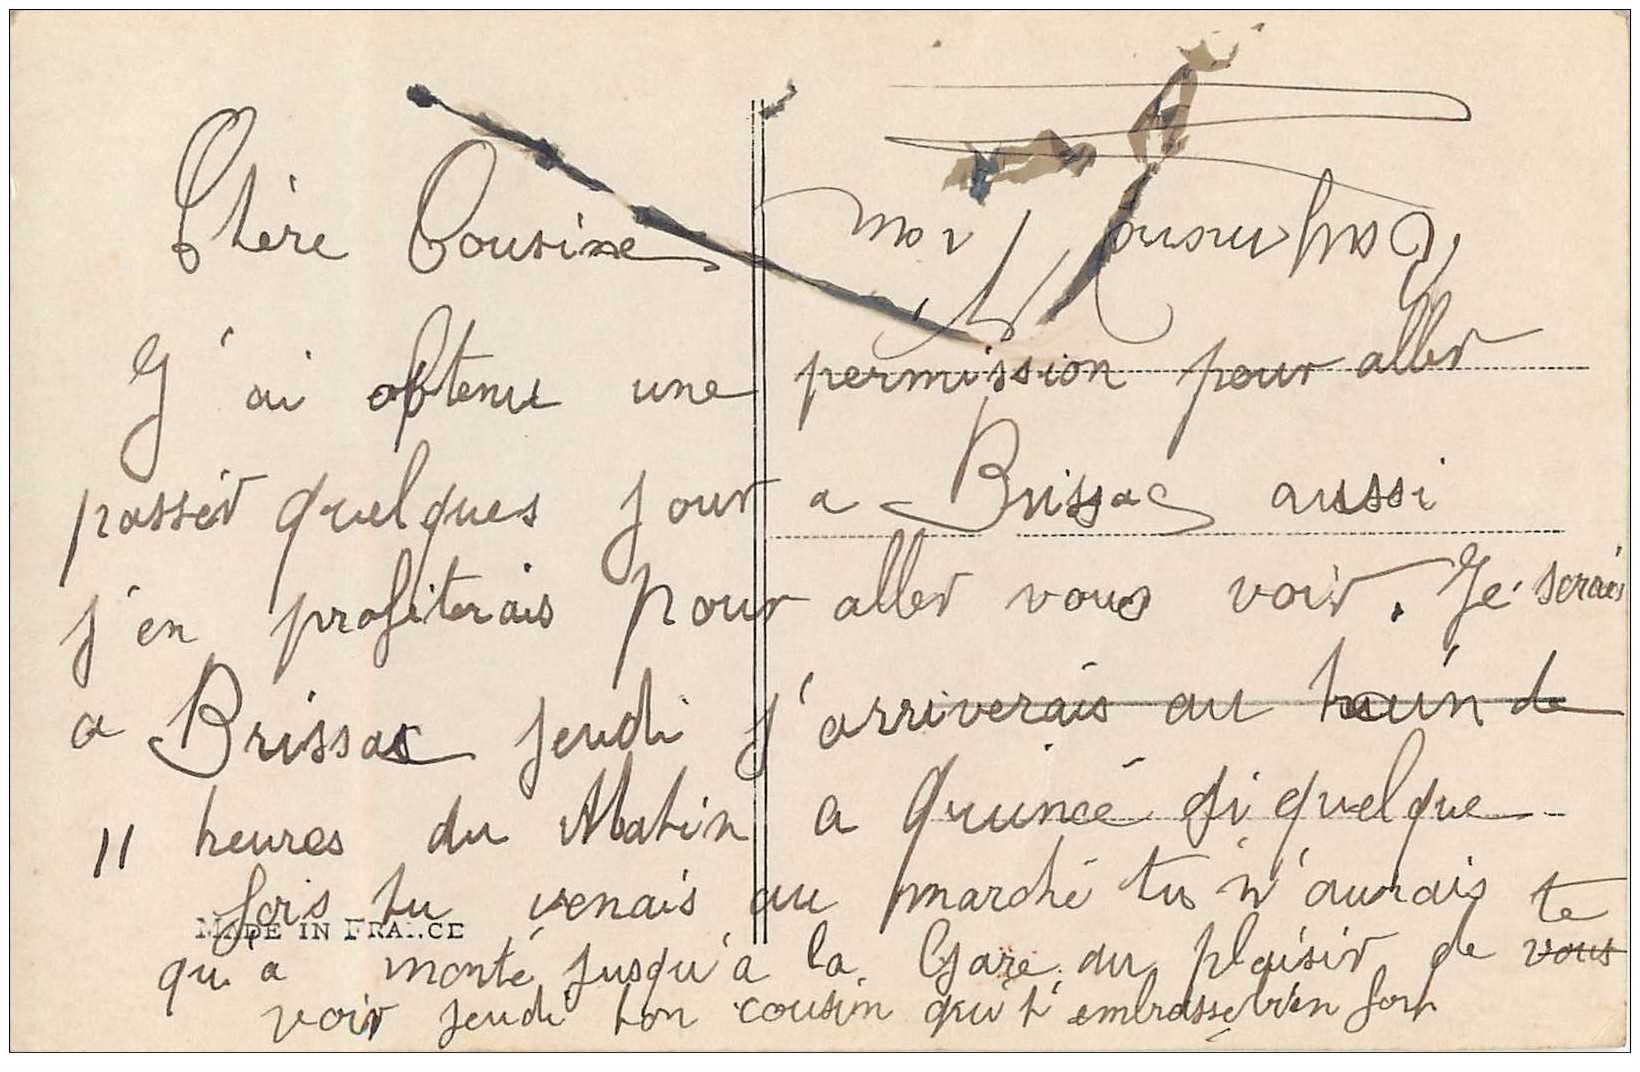 Chère Cousine
J'ai obtenu une permission pour aller
passér quelques jour a Brissac aussi
j'en profiterais pour aller vous voir. Je serais
a Brissac jeudi j'arriverais au train de
11 heures du Matin a Quincé si quelque
fois tu venais au marché tu n'aurais
qu'a monté jusqu'à la Gare au plaisir de vous te
voir jeudi ton cousin qui t'embrasse bien fort
MADE IN FRANCE